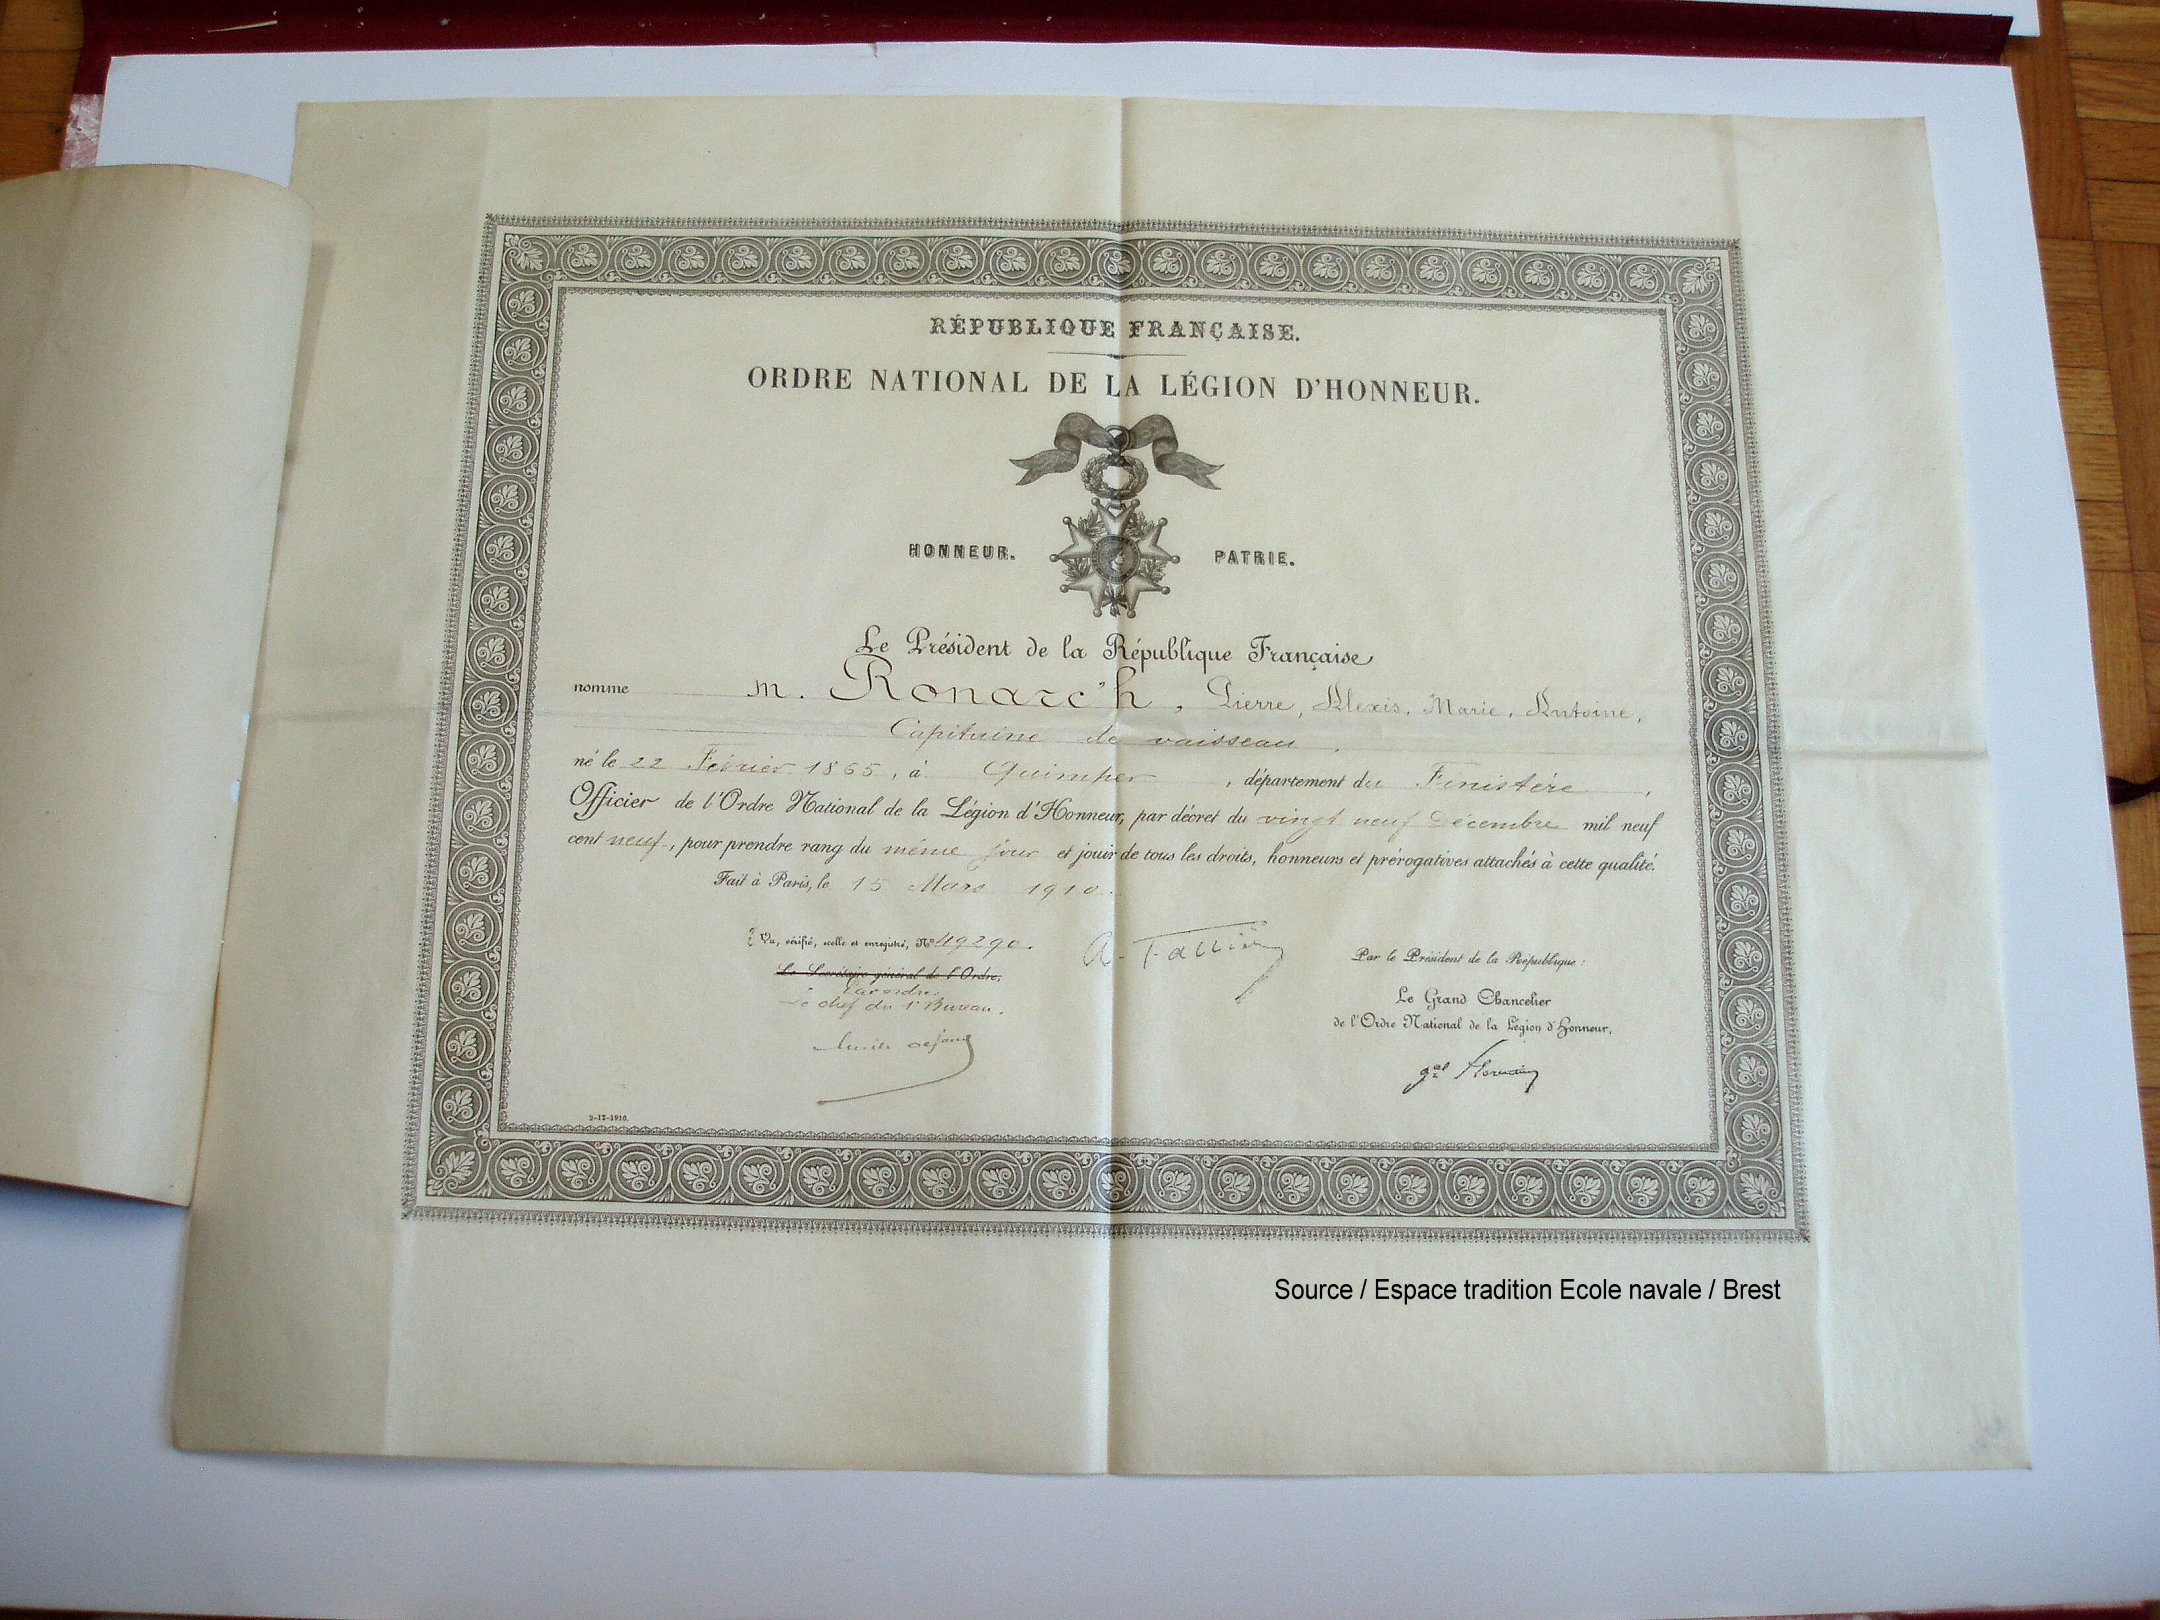 RÉPUBLIQUE FRANÇAISE.
ORDRE NATIONAL DE LA LÉGION D'HONNEUR.
HONNEUR. PATRIE.
Le Président de la République Française
nomme M. Ronarc'h, Pierre, Alexis, Marie, Antoine,
Capitaine de vaisseau,
né le 22 Février 1865, à Quimper, département du Finistère,
Officier de l'Ordre National de la Légion d'Honneur, par décret du vingt neuf Décembre mil neuf
cent neuf, pour prendre rang du même jour et jouir de tous les droits, honneurs et prérogatives attachés à cette qualité.
Fait à Paris, le 15 Mars 1910.
Vu, vérifié, scellé et enregistré, N° 49290.
Le Secrétaire général de l'Ordre,
Par ordre:
Le chef du 1er Bureau.
A. Fallières
Par le Président de la République:
Le Grand Chancelier
de l'Ordre National de la Légion d'Honneur,
gal Florentin
2-12-1910.
Source / Espace tradition Ecole navale / Brest